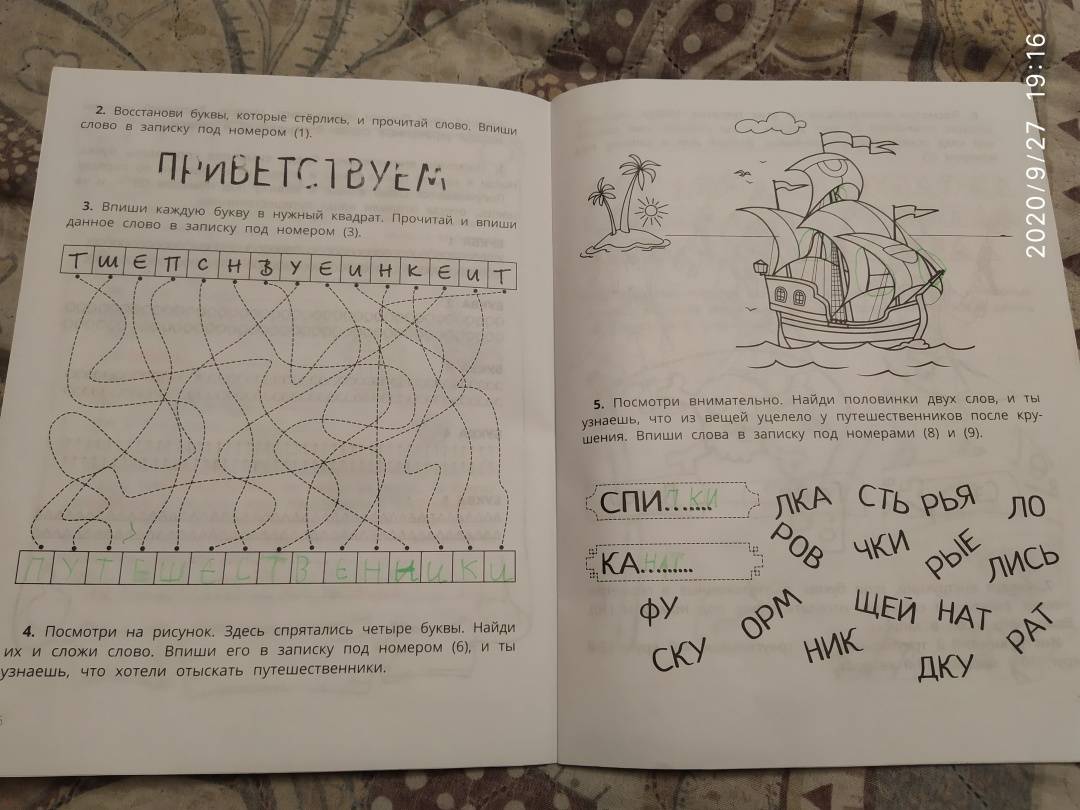 2. Восстанови буквы, которые стёрлись, и прочитай слово. Впиши
слово в записку под номером (1).
ПРИВЕТСТВУЕМ
3. Впиши каждую букву в нужный квадрат. Прочитай и впиши
данное слово в записку под номером (3).
Т Ш Е П С Н В У Е И Н К Е И Т
П У Т Е Ш Е С Т В Е Н Н И К И
4. Посмотри на рисунок. Здесь спрятались четыре буквы. Найди
их и сложи слово. Впиши его в записку под номером (6), и ты
узнаешь, что хотели отыскать путешественники.
5. Посмотри внимательно. Найди половинки двух слов, и ты
узнаешь, что из вещей уцелело у путешественников после кру-
шения. Впиши слова в записку под номерами (8) и (9).
СПИ.......ЧКИ
ЛКА СТЬ РЬЯ ЛО
РОВ ЧКИ РЫЕ ЛИСЬ
КА.......НАТ
ФУ ОРМ ЩЕЙ НАТ РАТ
СКУ НИК ДКУ
2020/9/27 19:16